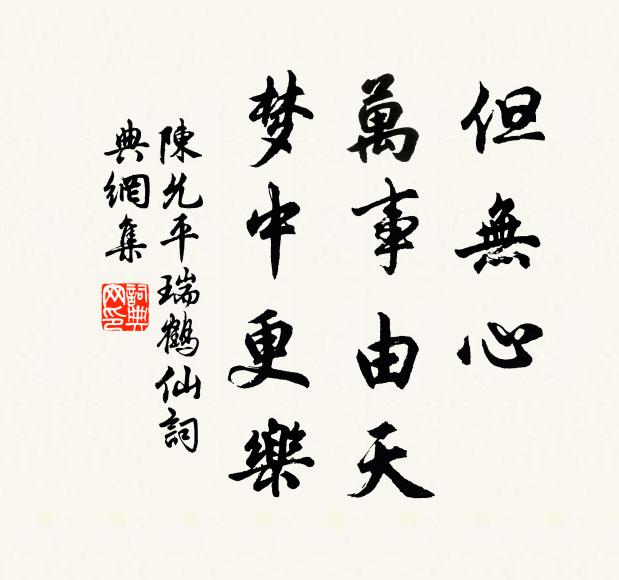 但無心
萬事由天
梦中更樂
陳允平瑞鶴仙詞
典網集
詞典
网印